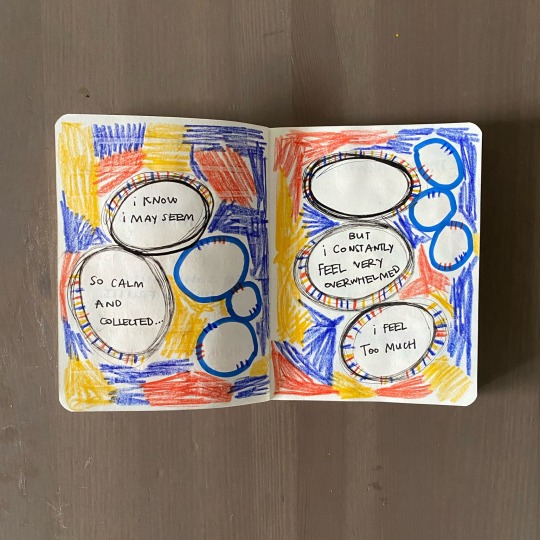 i KNOW
i MAY SEEM
SO CALM
AND
COLLECTED...
BUT
i CONSTANTLY
FEEL VERY
OVERWHELMED
i FEEL
TOO MUCH